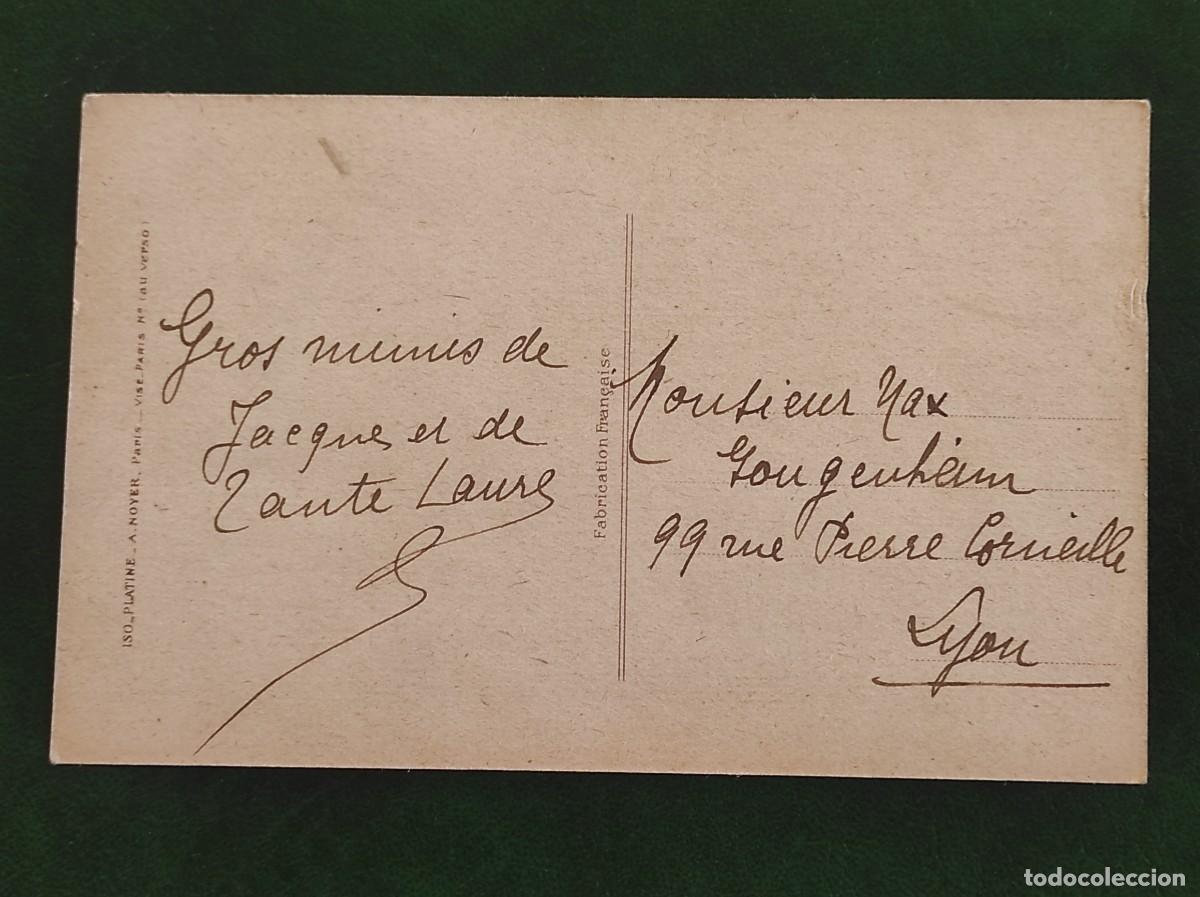 ISO_PLATINE_A. NOYER. Paris_VISE_PARIS Nº (au verso)
Gros mimis de
Jacques et de
Tante Laure
Fabrication Française
Monsieur Max
Gougenheim
99 rue Pierre Corneille
Lyon
todocoleccion